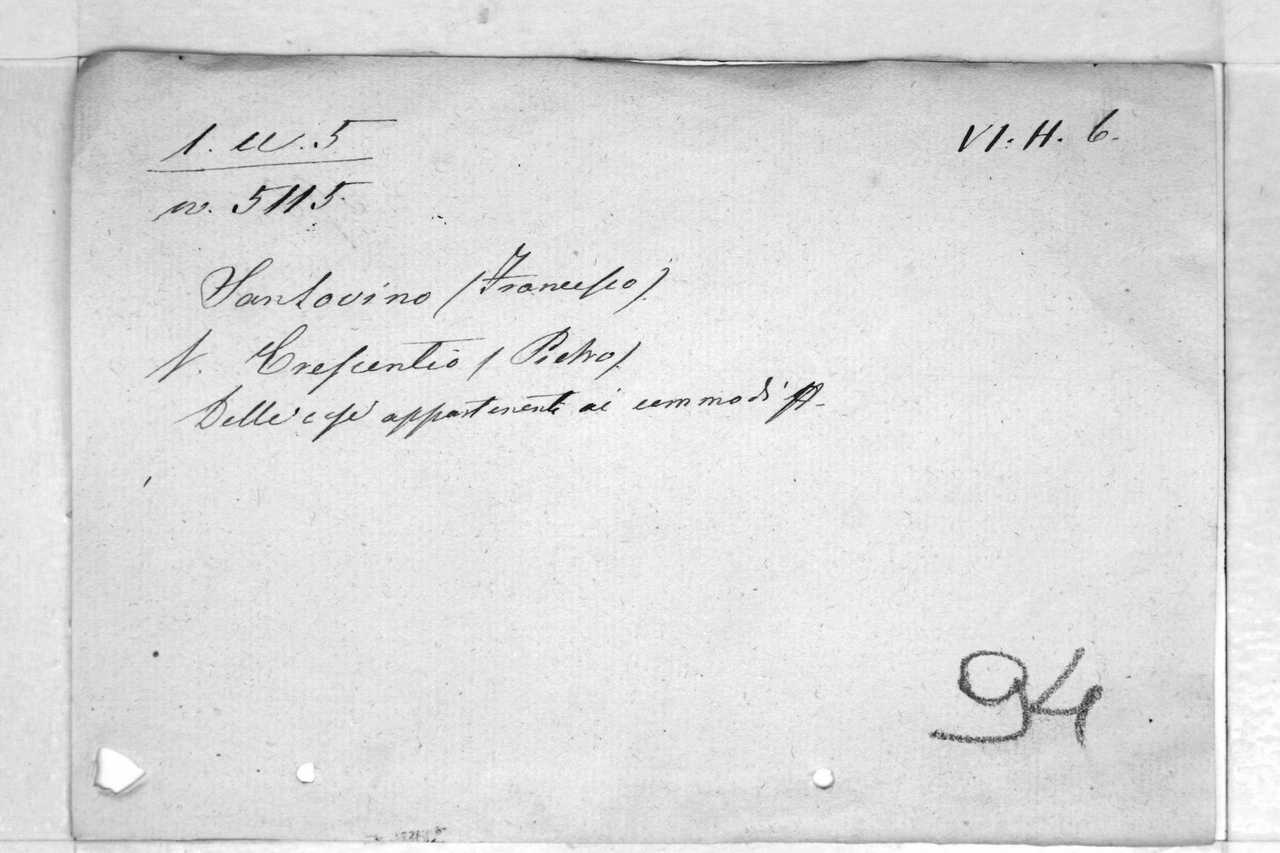 1. U. 5
VI. H. 6.
w. 5115.
Santovino (Francesco)
v. Crescentio (Pietro)
Delle cose appartenenti ai commodi
94